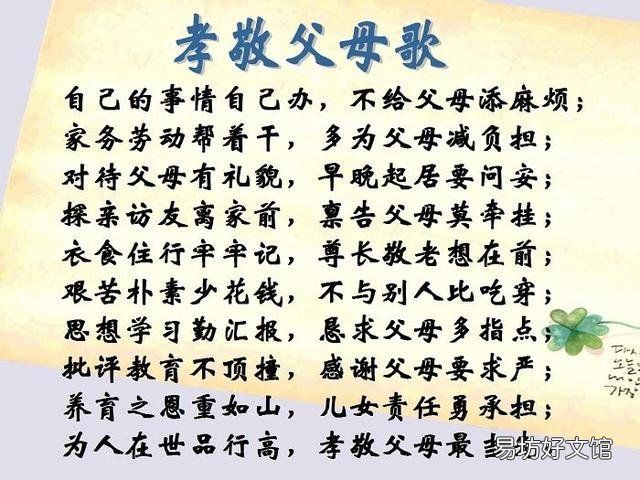 孝敬父母歌
自己的事情自己办，不给父母添麻烦；
家务劳动帮着干，多为父母减负担；
对待父母有礼貌，早晚起居要问安；
探亲访友离家前，禀告父母莫牵挂；
衣食住行牢牢记，尊长敬老想在前；
艰苦朴素少花钱，不与别人比吃穿；
思想学习勤汇报，恳求父母多指点；
批评教育不顶撞，感谢父母要求严；
养育之恩重如山，儿女责任勇承担；
为人在世品行高，孝敬父母最
易坊好文馆